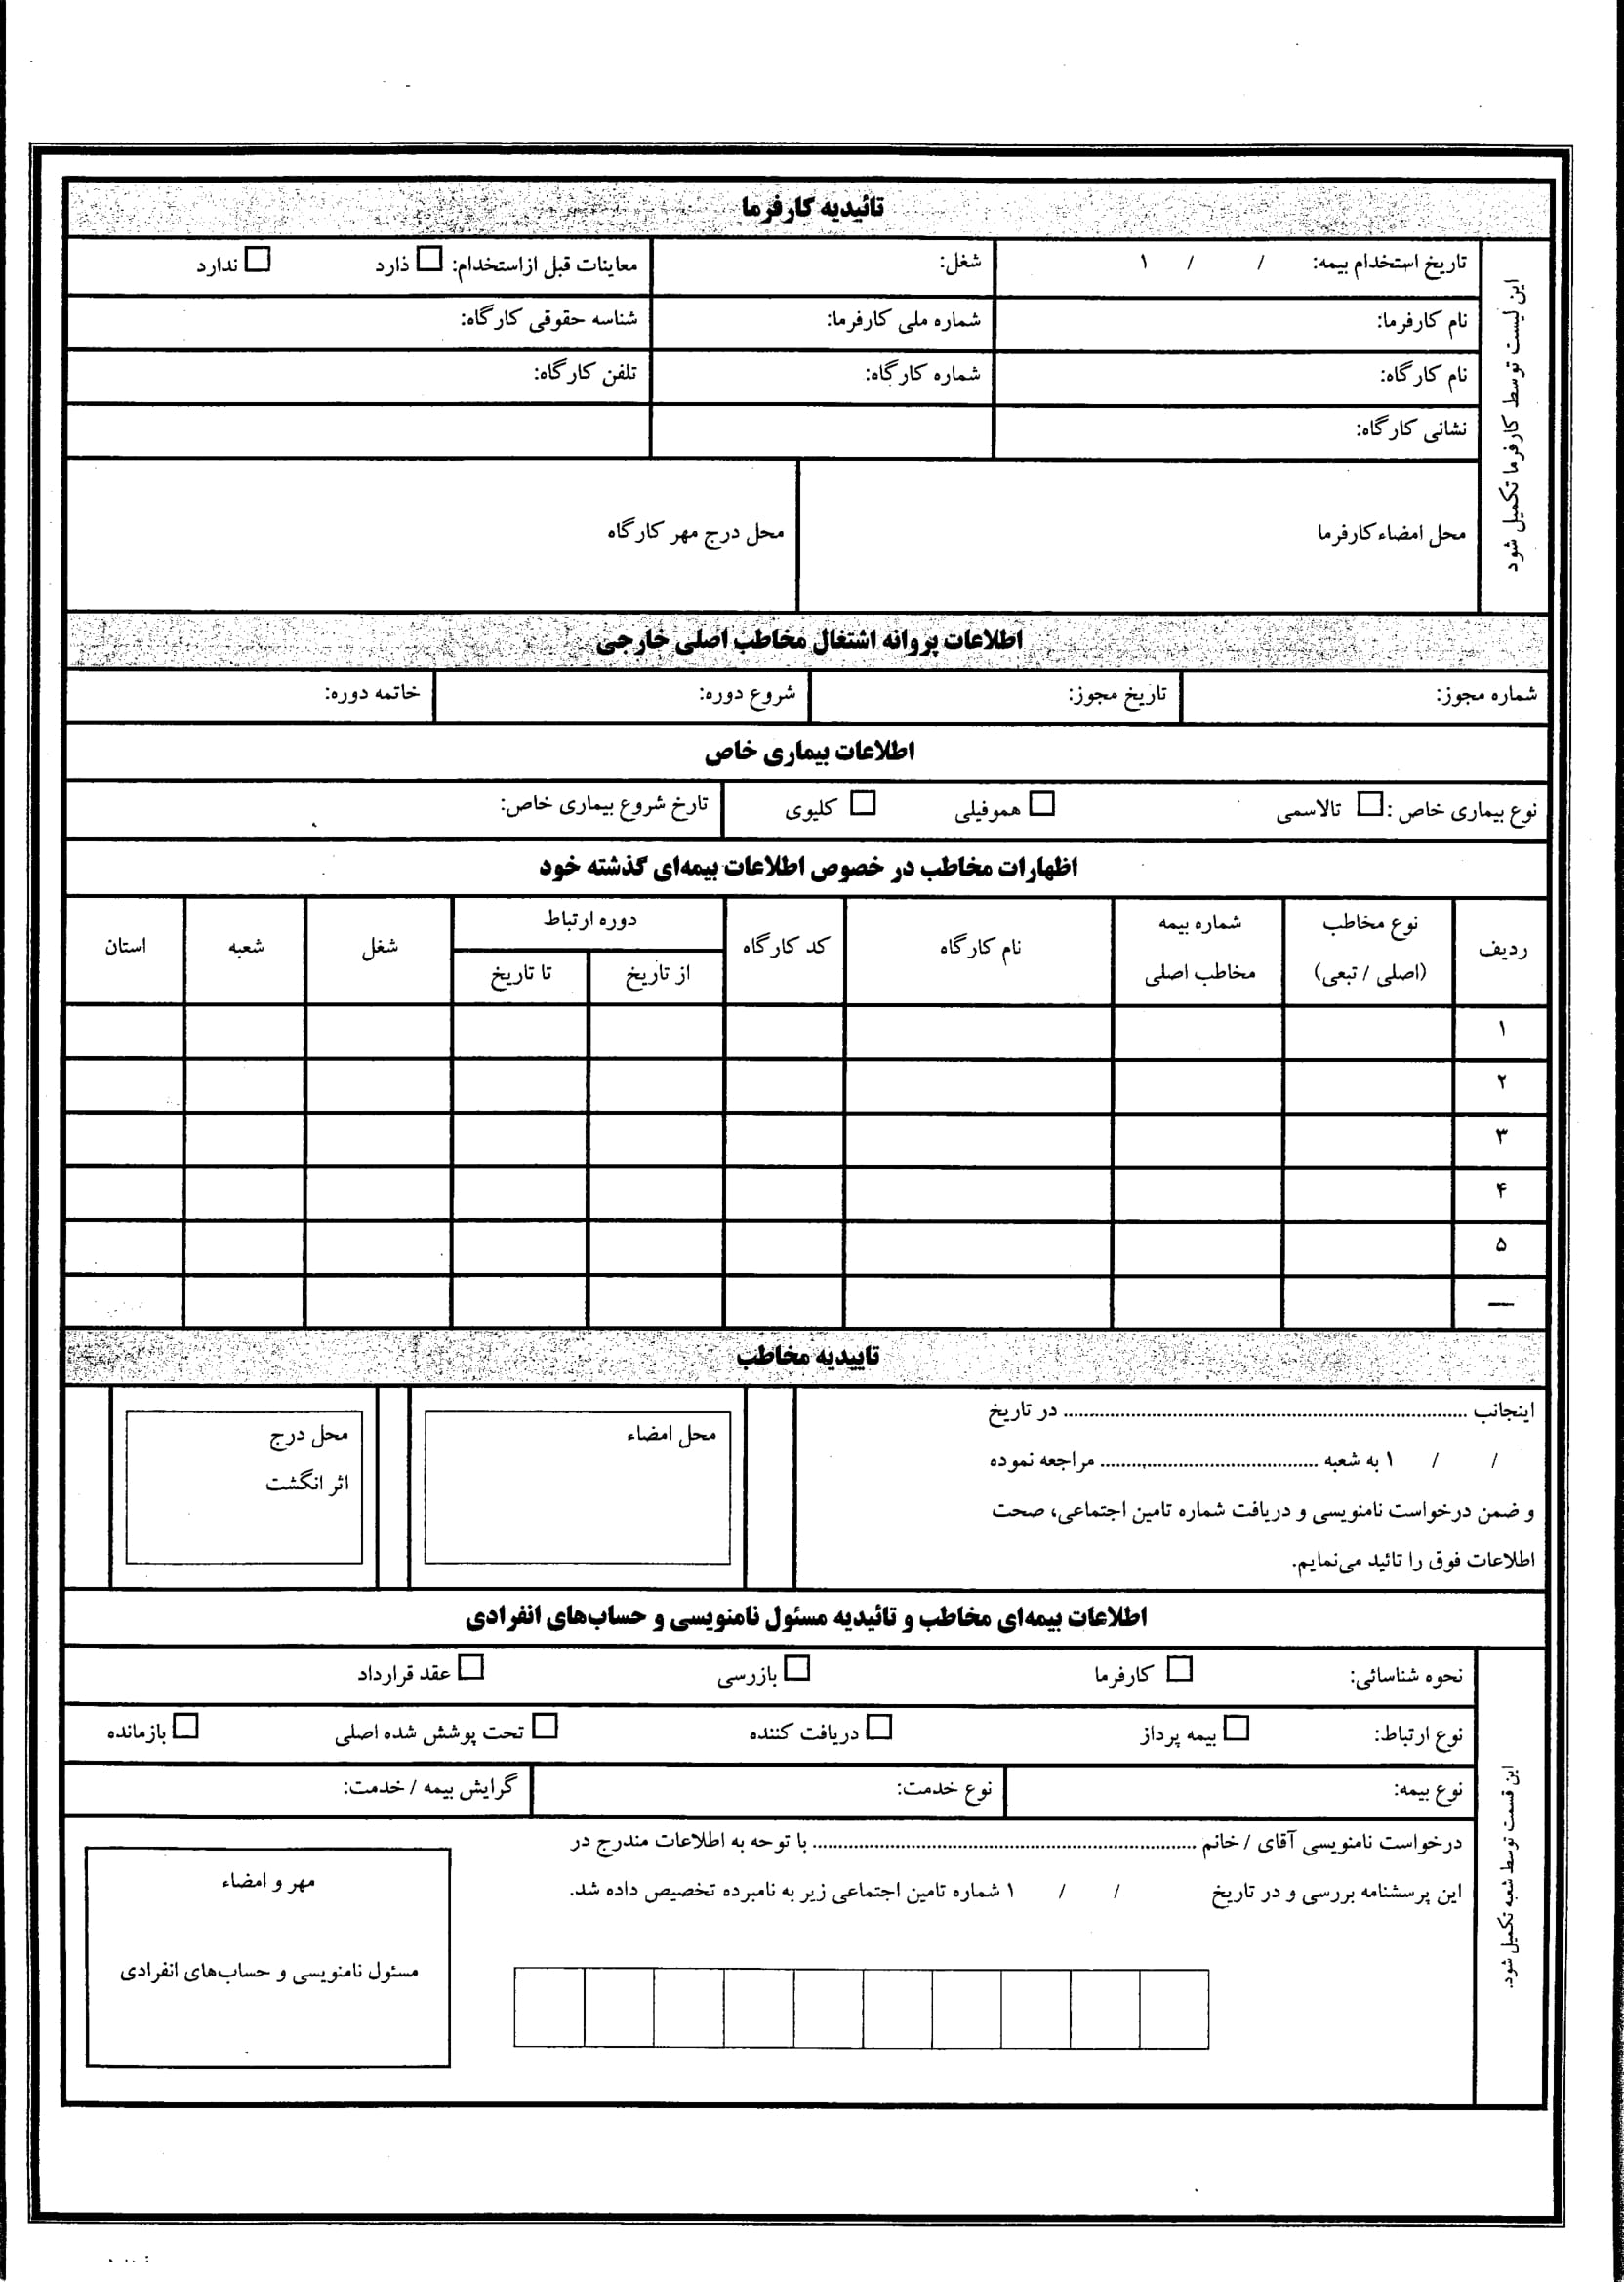 تائیدیه کارفرما
این لیست توسط کارفرما تکمیل شود
تاریخ استخدام بیمه: / / ۱ شغل: معاینات قبل ازاستخدام: ☐ ذارد ☐ ندارد
نام کارفرما: شماره ملی کارفرما: شناسه حقوقی کارگاه:
نام کارگاه: شماره کارگاه: تلفن کارگاه:
نشانی کارگاه:
محل امضاءکارفرما محل درج مهر کارگاه
اطلاعات پروانه اشتغال مخاطب اصلی خارجی
شماره مجوز: تاریخ مجوز: شروع دوره: خاتمه دوره:
اطلاعات بیماری خاص
نوع بیماری خاص : ☐ تالاسمی ☐ هموفیلی ☐ کلیوی تارخ شروع بیماری خاص:
اظهارات مخاطب در خصوص اطلاعات بیمه‌ای گذشته خود
ردیف نوع مخاطب (اصلی / تبعی) شماره بیمه مخاطب اصلی نام کارگاه کد کارگاه دوره ارتباط شغل شعبه استان
از تاریخ تا تاریخ
۱
۲
۳
۴
۵
—
تاییدیه مخاطب
اینجانب ........................................ در تاریخ
/ / ۱ به شعبه ........................................ مراجعه نموده
و ضمن درخواست نامنویسی و دریافت شماره تامین اجتماعی، صحت
اطلاعات فوق را تائید می‌نمایم.
محل امضاء
محل درج
اثر انگشت
اطلاعات بیمه‌ای مخاطب و تائیدیه مسئول نامنویسی و حساب‌های انفرادی
این قسمت توسط شعبه تکمیل شود.
نحوه شناسائی: ☐ کارفرما ☐ بازرسی ☐ عقد قرارداد
نوع ارتباط: ☐ بیمه پرداز ☐ دریافت کننده ☐ تحت پوشش شده اصلی ☐ بازمانده
نوع بیمه: نوع خدمت: گرایش بیمه / خدمت:
درخواست نامنویسی آقای / خانم ........................................ با توحه به اطلاعات مندرج در
این پرسشنامه بررسی و در تاریخ / / ۱ شماره تامین اجتماعی زیر به نامبرده تخصیص داده شد.
مهر و امضاء
مسئول نامنویسی و حساب‌های انفرادی